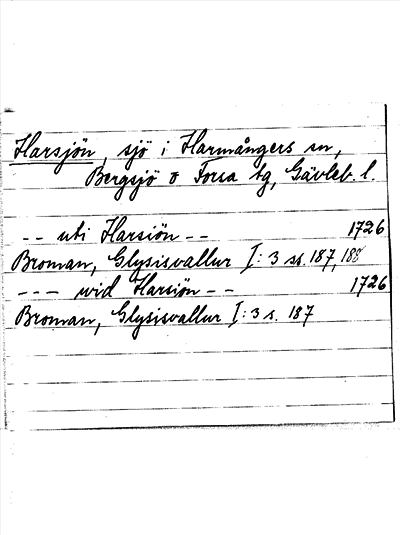 Harsjön, sjö i Harmångers sn,
Bergsjö o Forsa tg, Gävleb. l.
-- uti Harsiön -- 1726
Broman, Glysisvallur I: 3 ss. 187, 188
--- wid Harsiön -- 1726
Broman, Glysisvallur I: 3 s. 187